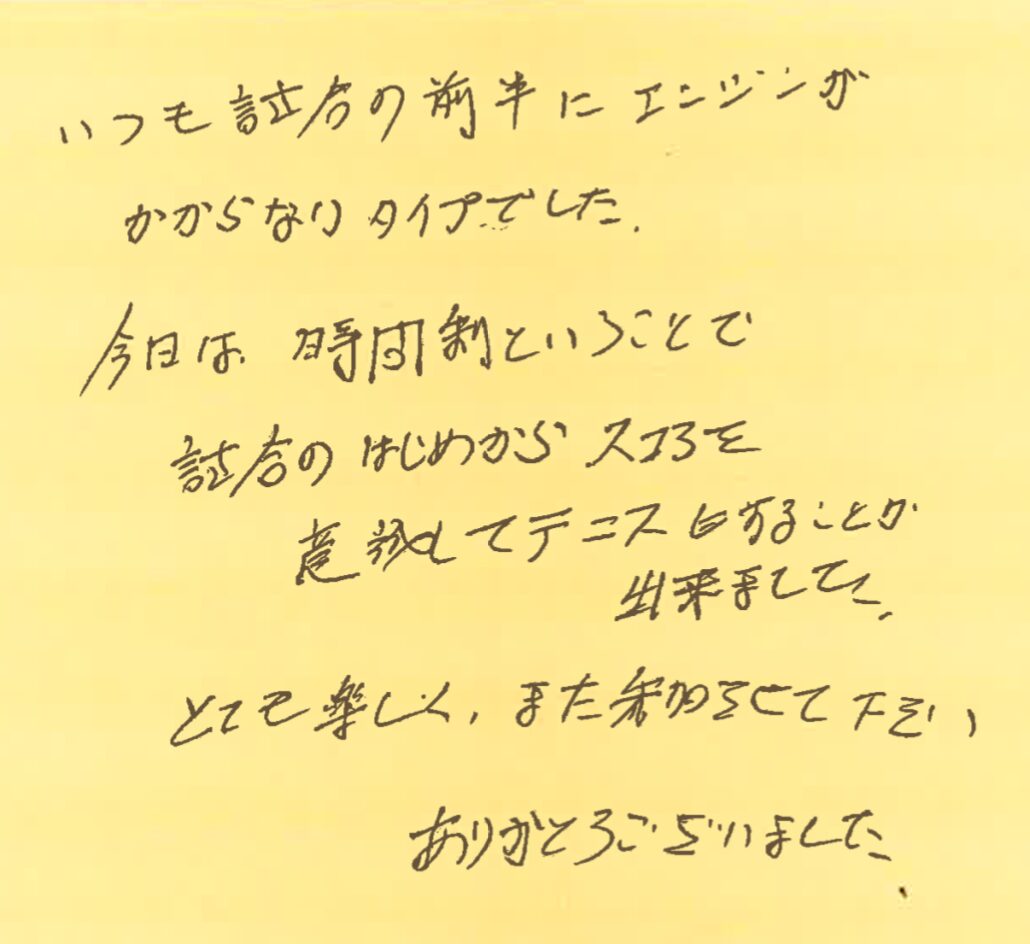 いつも試合の前半にエンジンが
かからないタイプでした.
今日は、時間制ということで
試合のはじめから スコアを
意識してテニスをすることが
出来ました.
とても楽しく、また参加させて下さい
ありがとうございました.